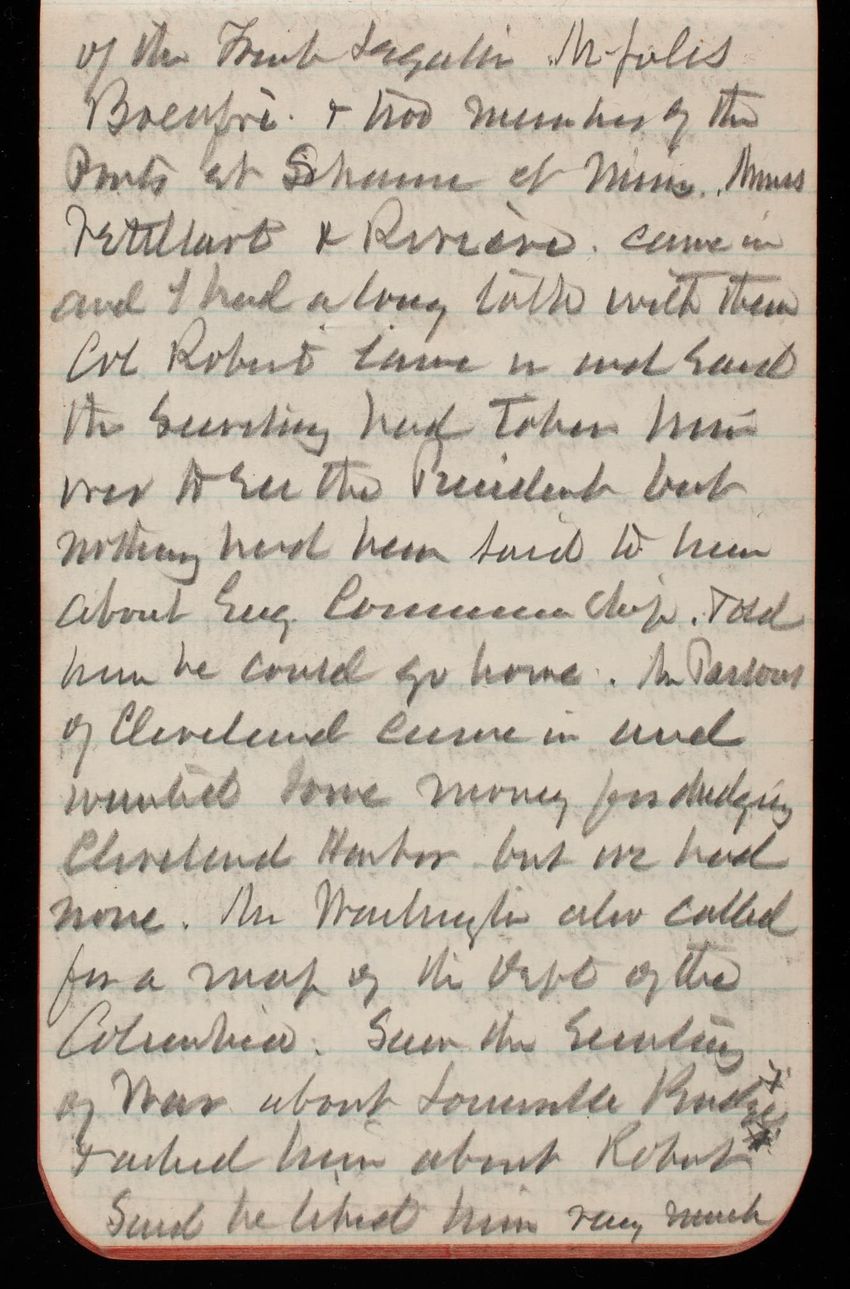 of the French Legation Mr Jules
Boeufvé & two members of the
Ponts et Chaussees et Mines. Messrs
Pétillard & Riviere. came in
and I had a long talk with them
Col Robert came in and said
the Secretary had taken him
over to see the President but
nothing had been said to him
about Eng. Commission Chip. Told
him he could go home. Mr Parsons
of Cleveland came in and
wanted some money for dredging
Cleveland Harbor but we had
none. Mr Washington also called
for a map of the Dept of the
Columbia. Saw the Secretary
of War about Louisville Bridge
& asked him about Robert
Said he liked him very much